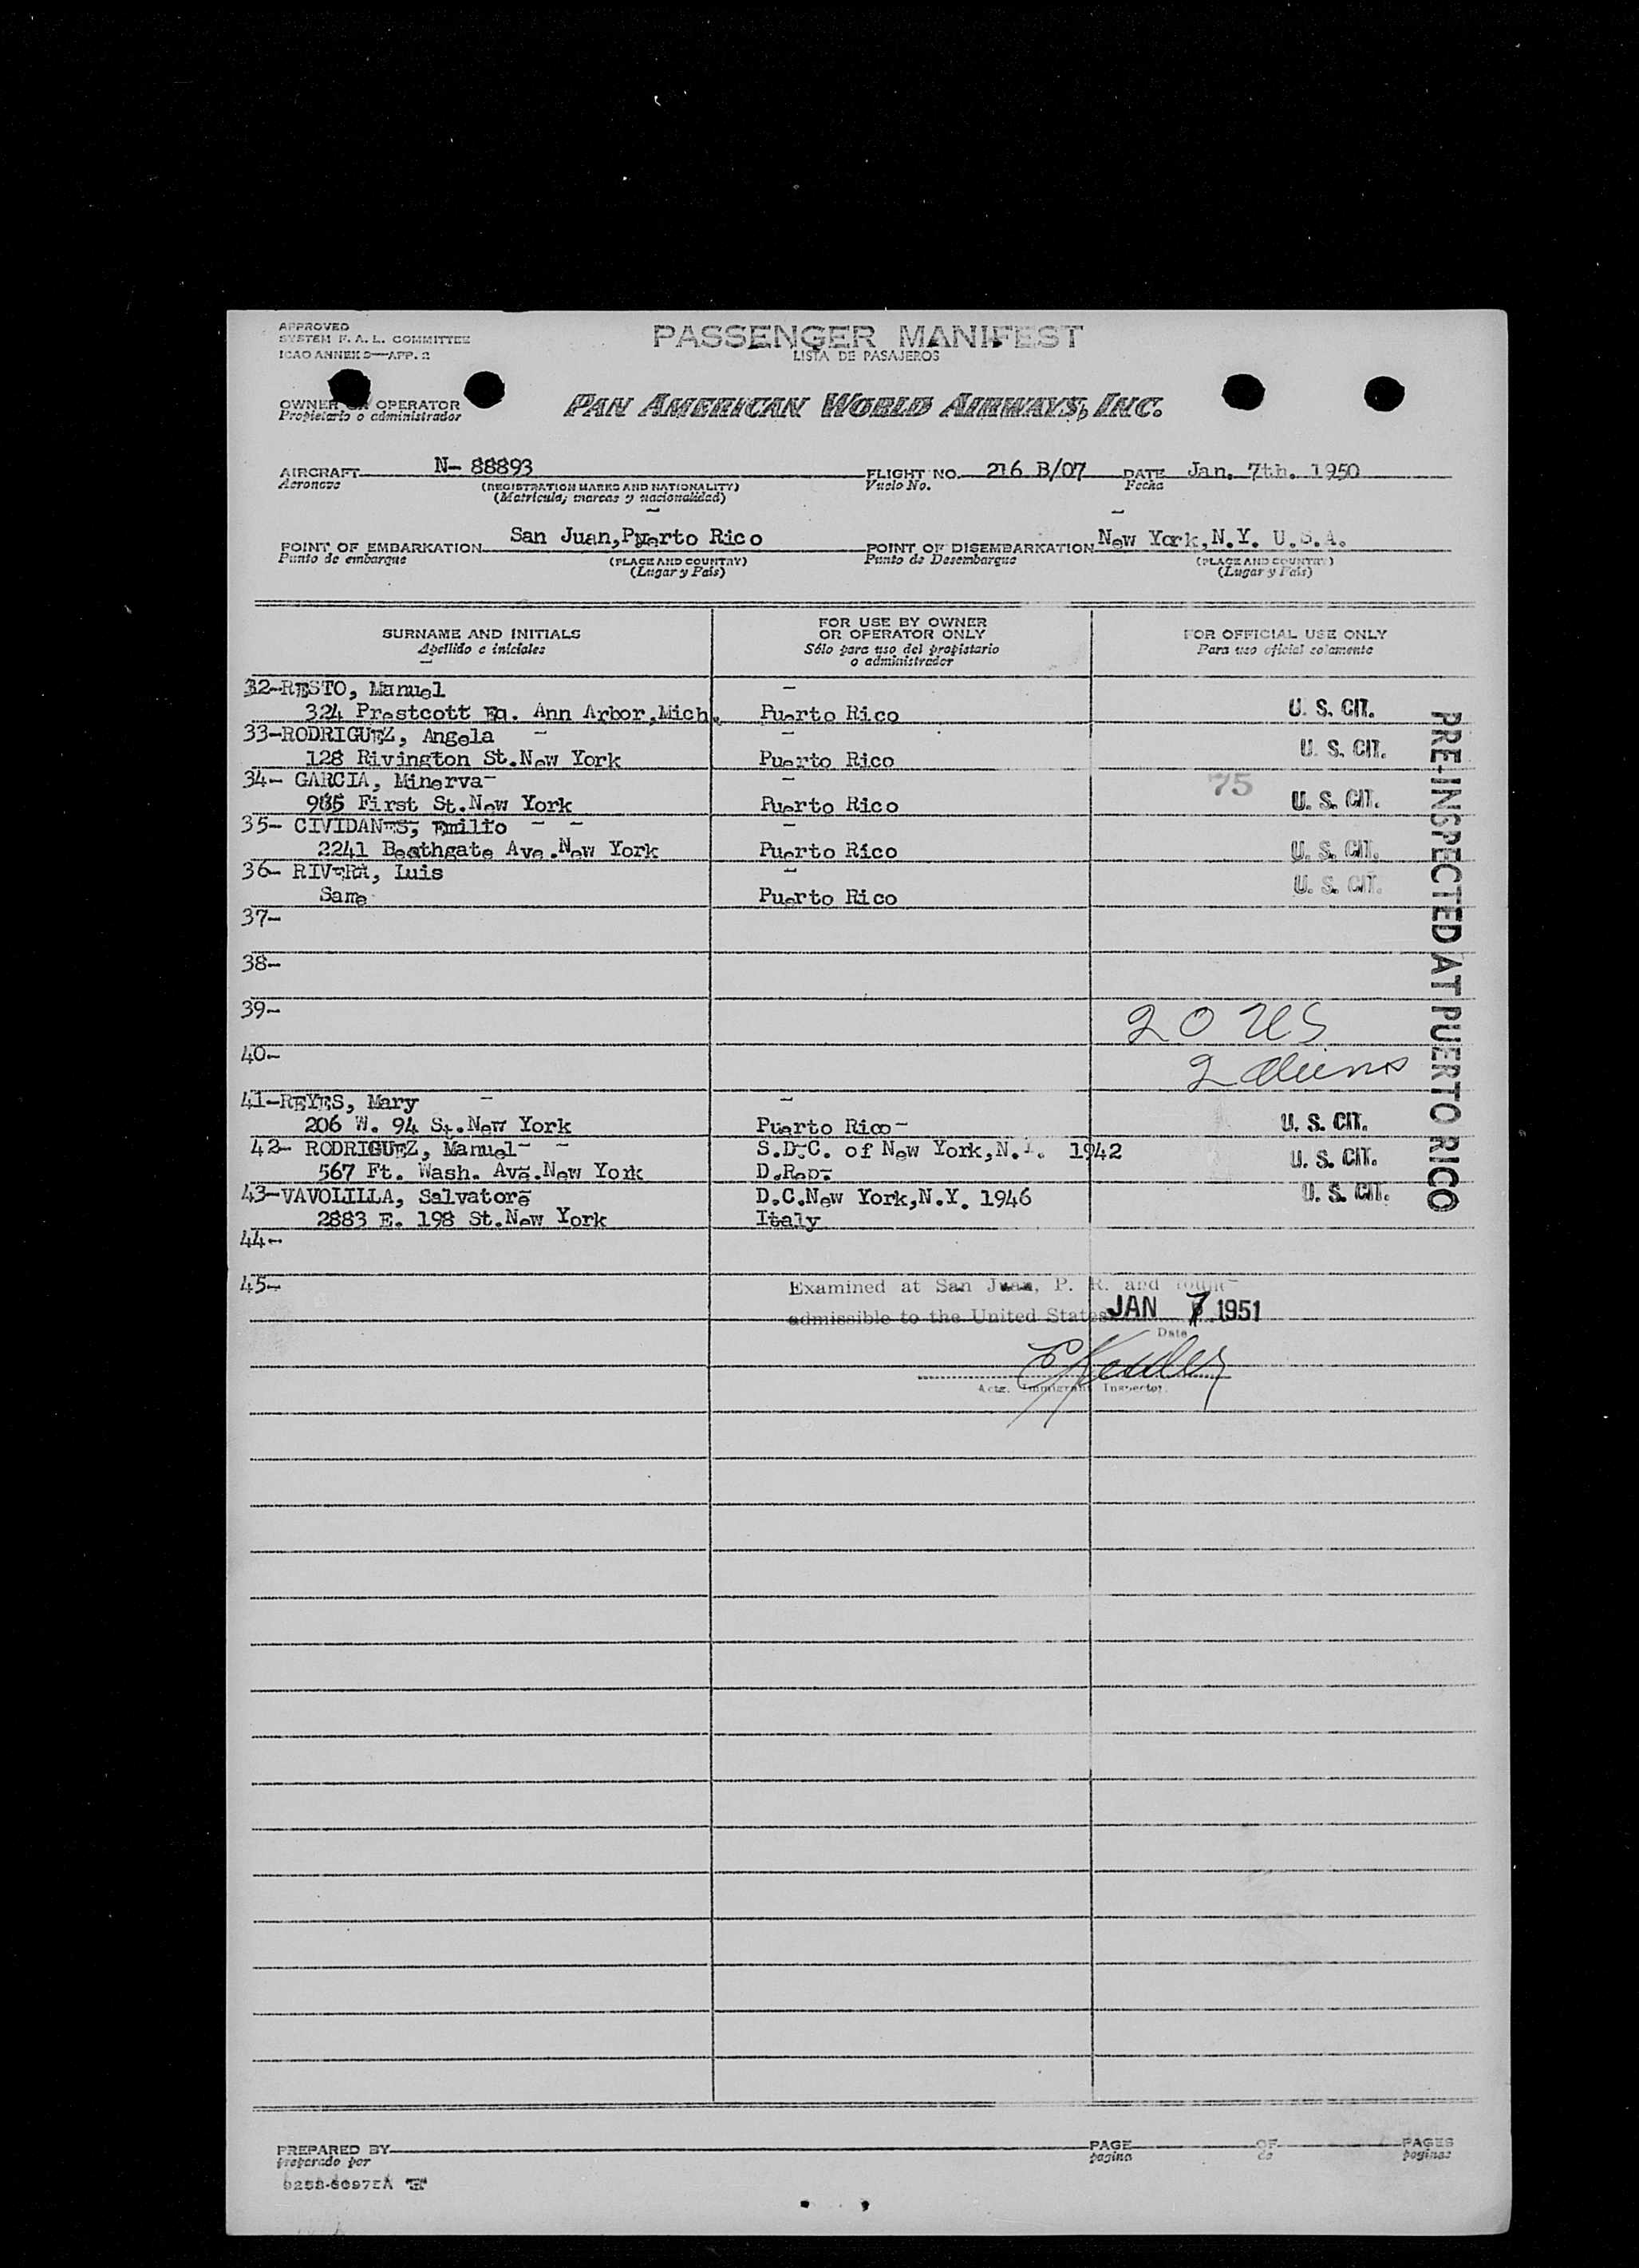 APPROVED
SYSTEM F. A. L. COMMITTEE
ICAO ANNEX 9—APP. 2
PASSENGER MANIFEST
LISTA DE PASAJEROS
OWNER OR OPERATOR
Propietario o administrador
PAN AMERICAN WORLD AIRWAYS, INC.
AIRCRAFT N- 88893 FLIGHT NO. 216 B/07 DATE Jan. 7th. 1950
Aeronave (REGISTRATION MARKS AND NATIONALITY) Vuelo No. Fecha
(Matricula; marcas y nacionalidad)
POINT OF EMBARKATION San Juan,Puerto Rico POINT OF DISEMBARKATION New York,N.Y. U.S.A.
Punto de embarque (PLACE AND COUNTRY) Punto de Desembarque (PLACE AND COUNTRY)
(Lugar y País) (Lugar y País)
SURNAME AND INITIALS
Apellido e iniciales
FOR USE BY OWNER
OR OPERATOR ONLY
Sólo para uso del propietario
o administrador
FOR OFFICIAL USE ONLY
Para uso oficial solamente
32-RESTO, Manuel
324 Prestcott Eq. Ann Arbor,Mich. Puerto Rico U. S. CIT.
33-RODRIGUEZ, Angela
128 Rivington St.New York Puerto Rico U. S. CIT.
34- GARCIA, Minerva 75
985 First St.New York Puerto Rico U. S. CIT.
35- CIVIDANES, Emilio
2241 Beathgate Ave.New York Puerto Rico U. S. CIT.
36- RIVERA, Luis U. S. CIT.
Same Puerto Rico
37-
38-
39- 20 US
40- 2 aliens
41-REYES, Mary
206 W. 94 St.New York Puerto Rico U. S. CIT.
42- RODRIGUEZ, Manuel S.D.C. of New York,N.Y. 1942 U. S. CIT.
567 Ft. Wash. Ave.New York D.Rep.
43-VAVOLILLA, Salvatore D.C.New York,N.Y. 1946 U. S. CIT.
2883 E. 198 St.New York Italy
44-
45-
PRE-INSPECTED AT PUERTO RICO
Examined at San Juan, P. R. and found
admissible to the United States JAN 7 1951
Date
Actg. Immigrant Inspector.
PREPARED BY PAGE OF PAGES
preparado por pagina de paginas